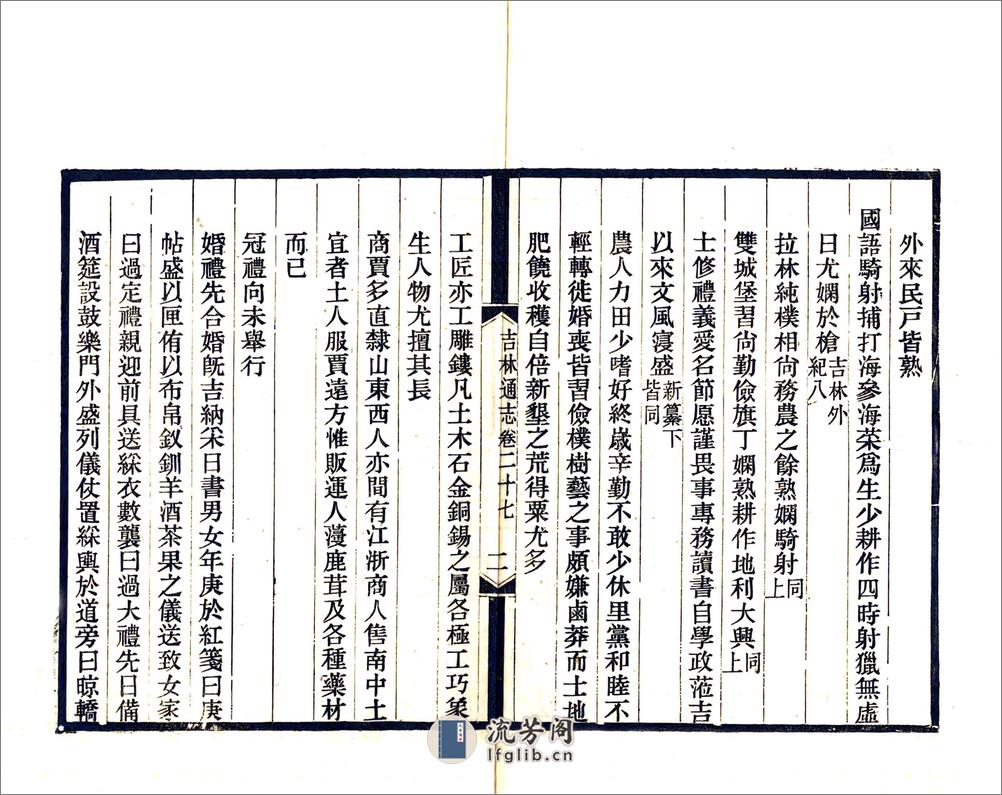 外來民戸皆熟
國語騎射捕打海參海菜爲生少耕作四時射獵無虛
日尤嫻於槍吉林外紀八
拉林純樸相尙務農之餘熟嫻騎射同上
雙城堡習尙勤儉旗丁嫻熟耕作地利大興同上
士修禮義愛名節愿謹畏事專務讀書自學政蒞吉
以來文風寖盛新纂下皆同
農人力田少嗜好終歲辛勤不敢少休里黨和睦不
輕轉徙婚喪皆習儉樸樹藝之事頗嫌鹵莽而土地
肥饒收穫自倍新墾之荒得粟尤多
吉林通志卷二十七 二
工匠亦工雕鏤凡土木石金銅錫之屬各極工巧象
生人物尤擅其長
商賈多直隸山東西人亦間有江浙商人售南中土
宜者土人服賈遠方惟販運人蓡鹿茸及各種藥材
而已
冠禮向未舉行
婚禮先合婚旣吉納采日書男女年庚於紅箋曰庚
帖盛以匣侑以布帛釵釧羊酒茶果之儀送致女家
曰過定禮親迎前具送綵衣數襲曰過大禮先日備
酒筵設鼓樂門外盛列儀仗置綵輿於道旁曰晾轎
流芳阁
lfglib.cn